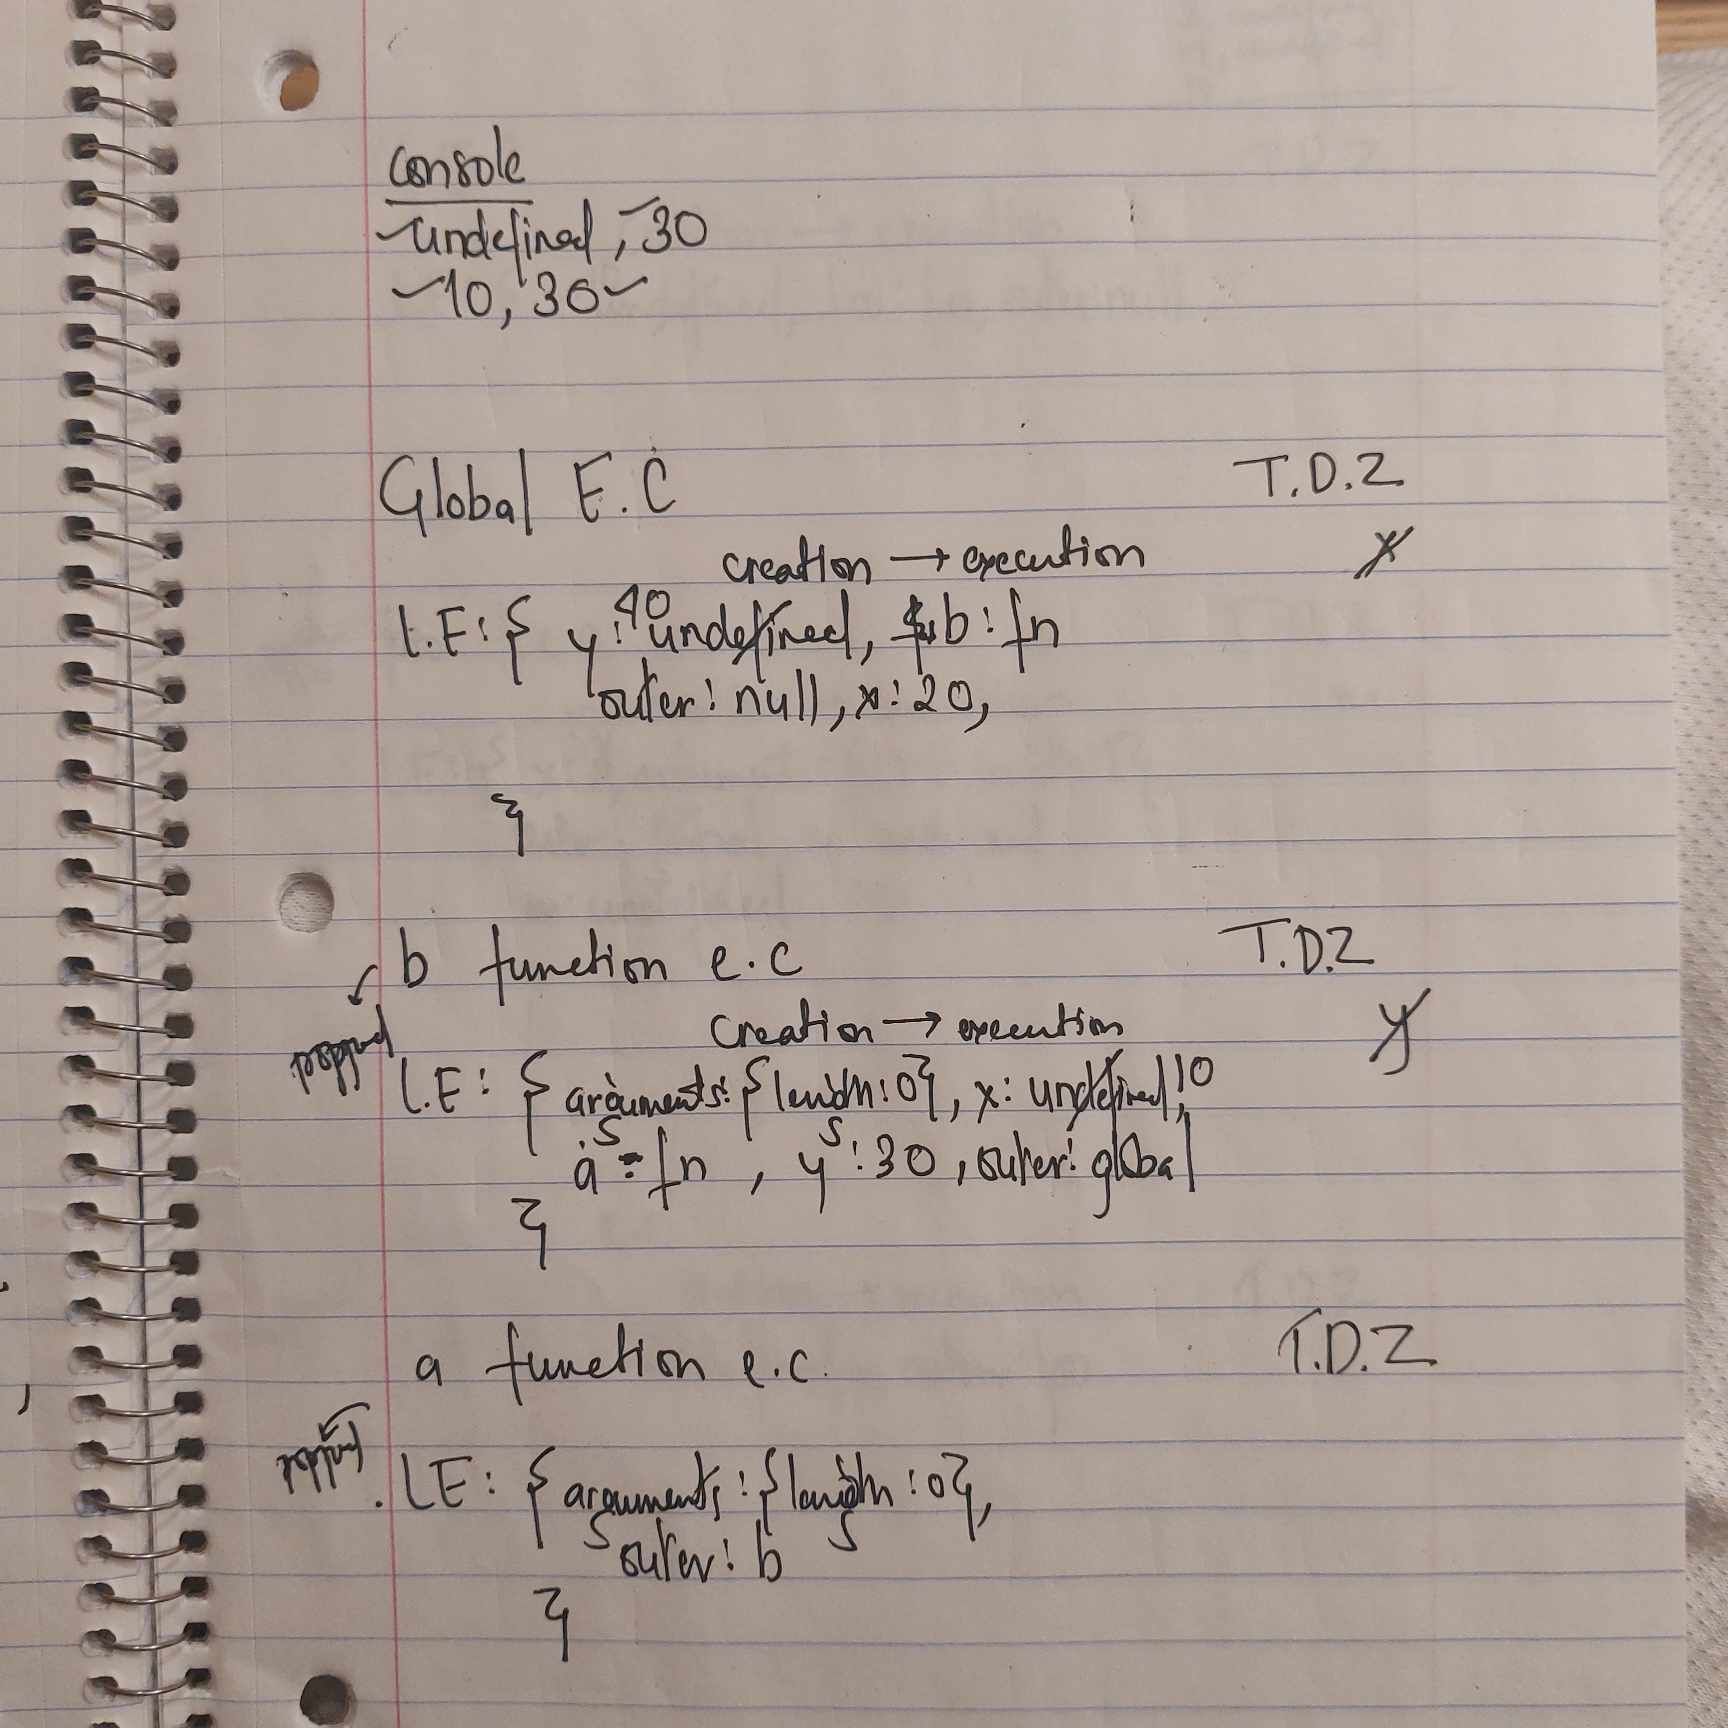 console
undefined, 30
10, 30
Global E.C T.D.Z
creation → execution x
L.E: { y: undefined, 40 b: fn
outer: null, x: 20,
}
b function e.c T.D.Z
popped
creation → execution y
L.E: { arguments: {length: 0}, x: undefined, 10
a: fn, y: 30, outer: global
}
a function e.c. T.D.Z
popped
LE: { arguments: {length: 0},
outer: b
}